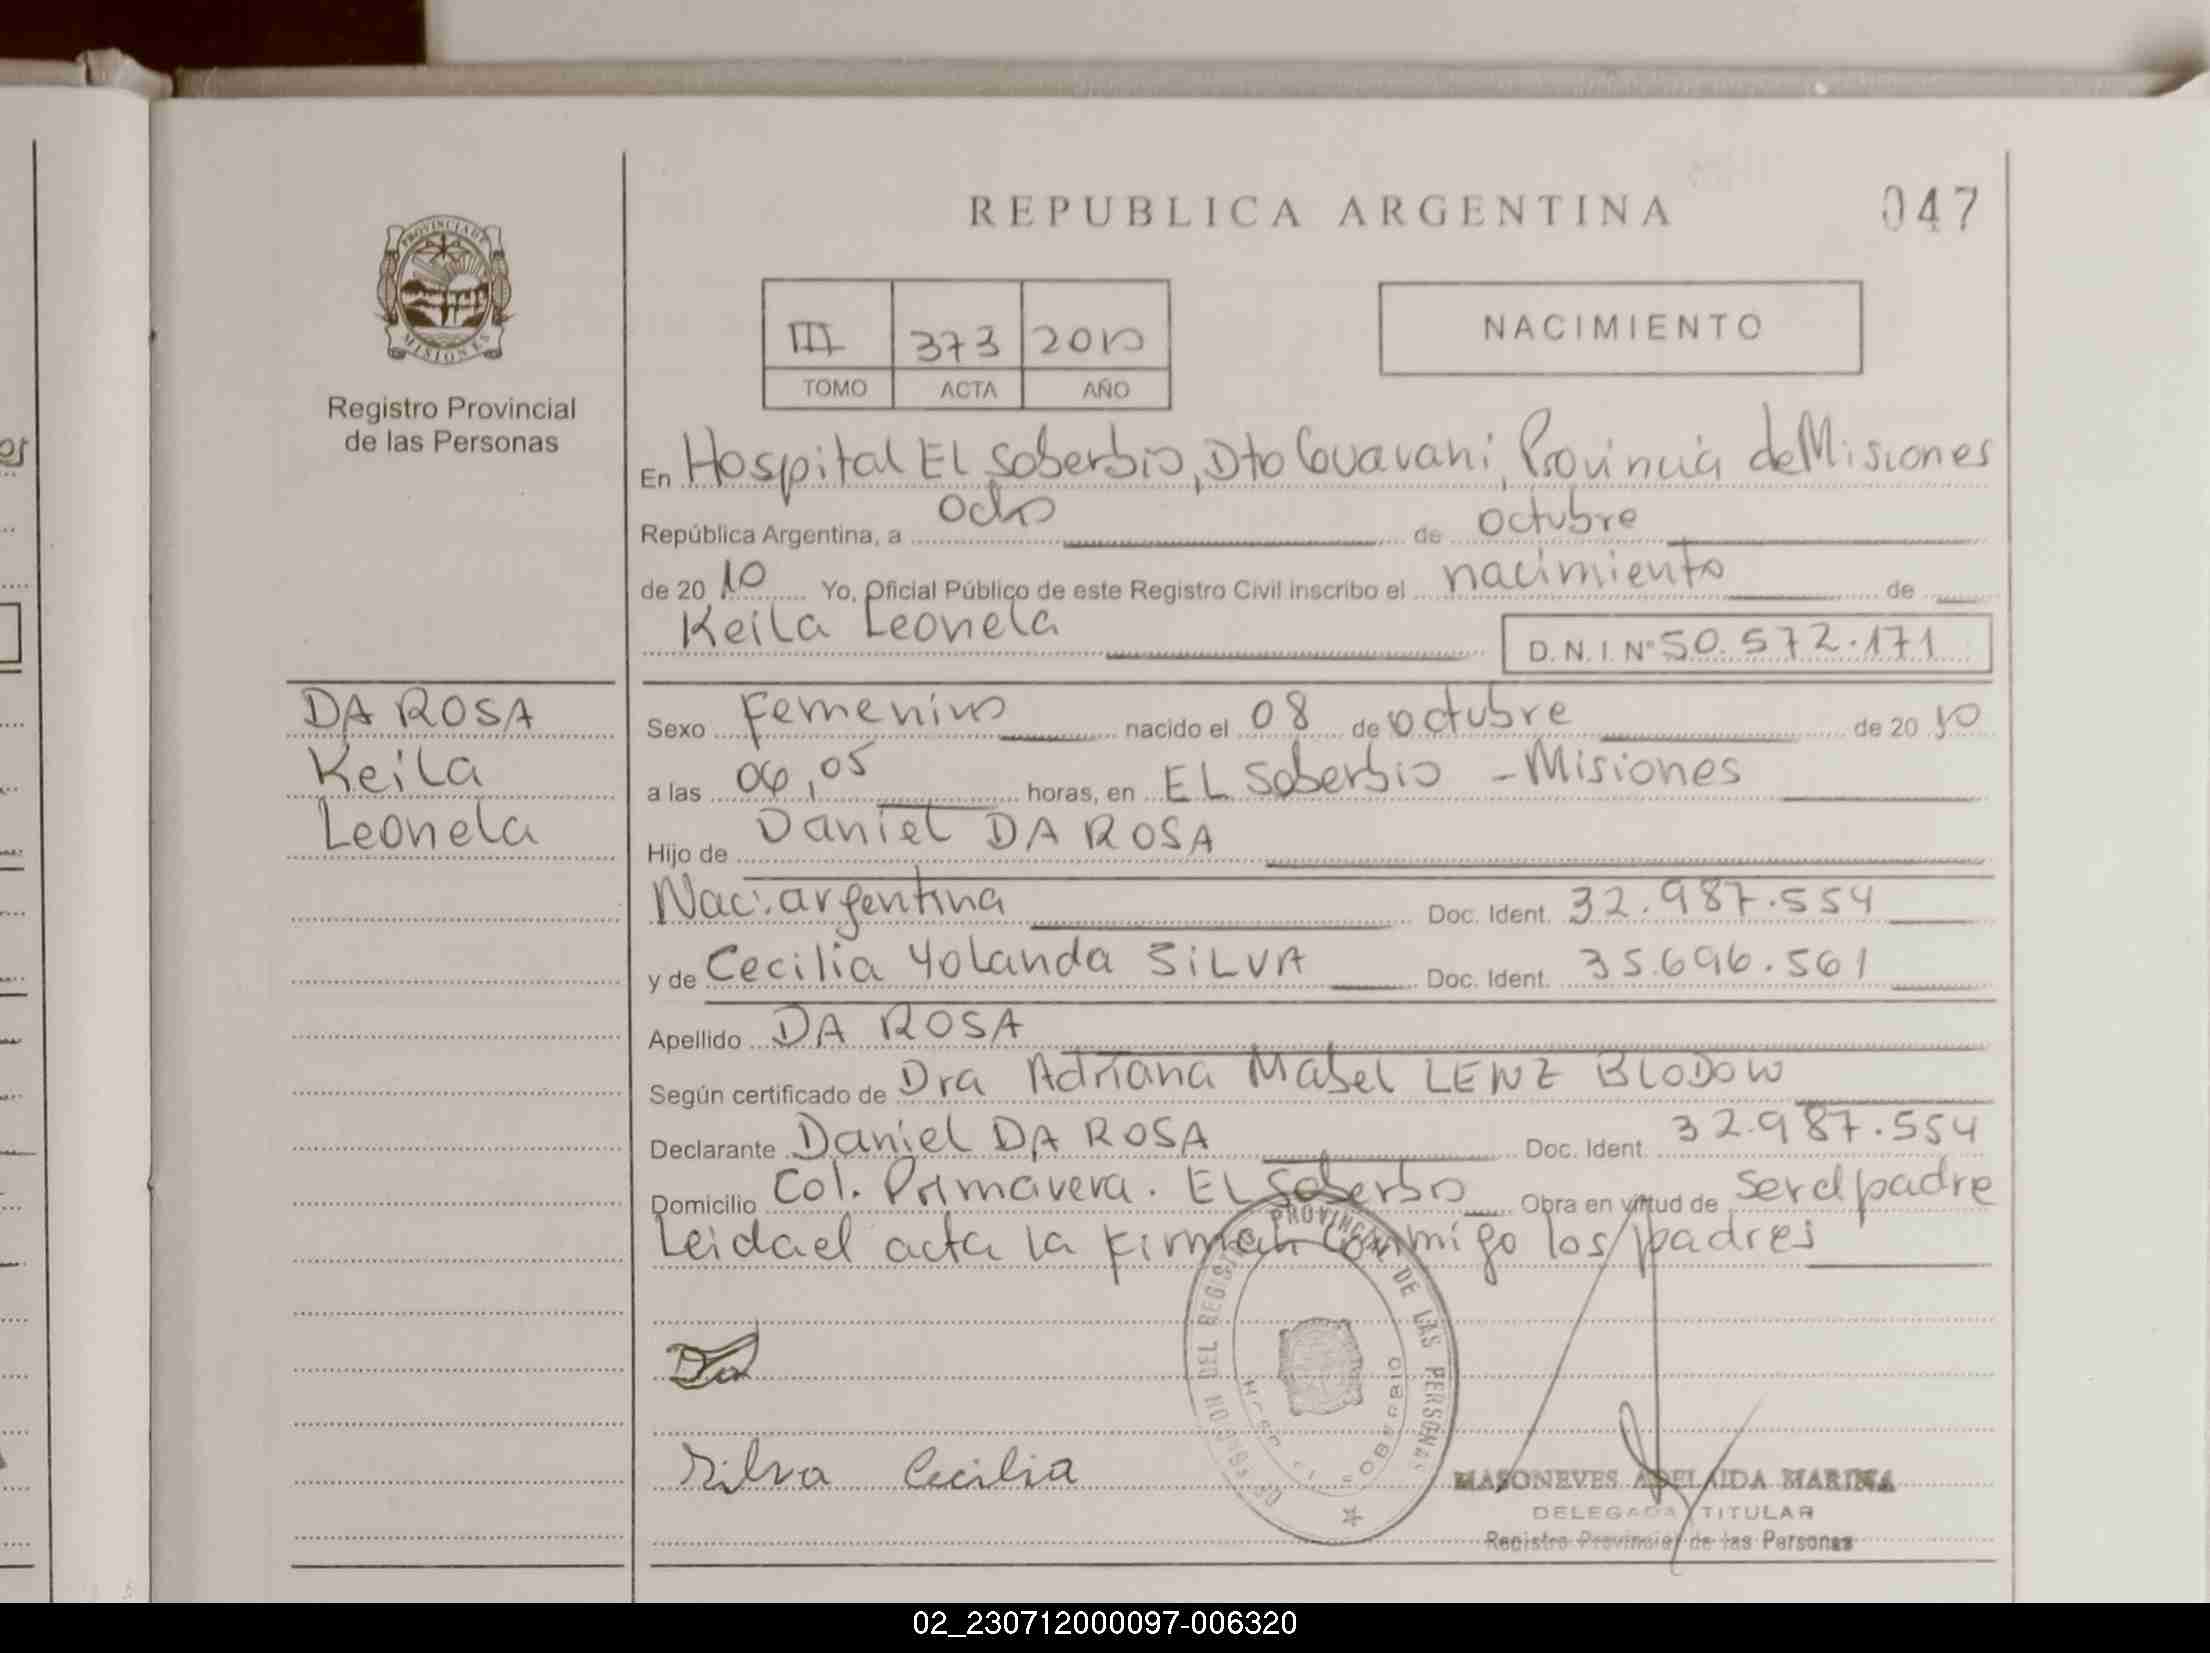 REPUBLICA ARGENTINA
047
PROVINCIA DE
MISIONES
Registro Provincial
de las Personas
III 373 2010
TOMO ACTA AÑO
NACIMIENTO
En Hospital EL Soberbio, Dto Guarani, Provincia de Misiones
República Argentina, a ocho de octubre
de 2010 Yo, Oficial Público de este Registro Civil inscribo el nacimiento de
Keila Leonela D.N.I. Nº 50.572.171
DA ROSA
Keila
Leonela
Sexo Femenino nacido el 08 de octubre de 2010
a las 06,05 horas, en EL Soberbio - Misiones
Hijo de Daniel DA ROSA
Nac. argentina Doc. Ident. 32.987.554
y de Cecilia Yolanda SILVA Doc. Ident. 35.696.561
Apellido DA ROSA
Según certificado de Dra Adriana Mabel LENZ BLODOW
Declarante Daniel DA ROSA Doc. Ident. 32.987.554
Domicilio Col. Primavera. EL Soberbio Obra en virtud de ser el padre
Leida el acta la firman conmigo los padres
DEL REGISTRO PROVINCIAL DE LAS PERSONAS
SOBERBIO
Silva Cecilia
MASONEVES ADELAIDA MARINA
DELEGADA TITULAR
Registro Provincial de las Personas
02_230712000097-006320